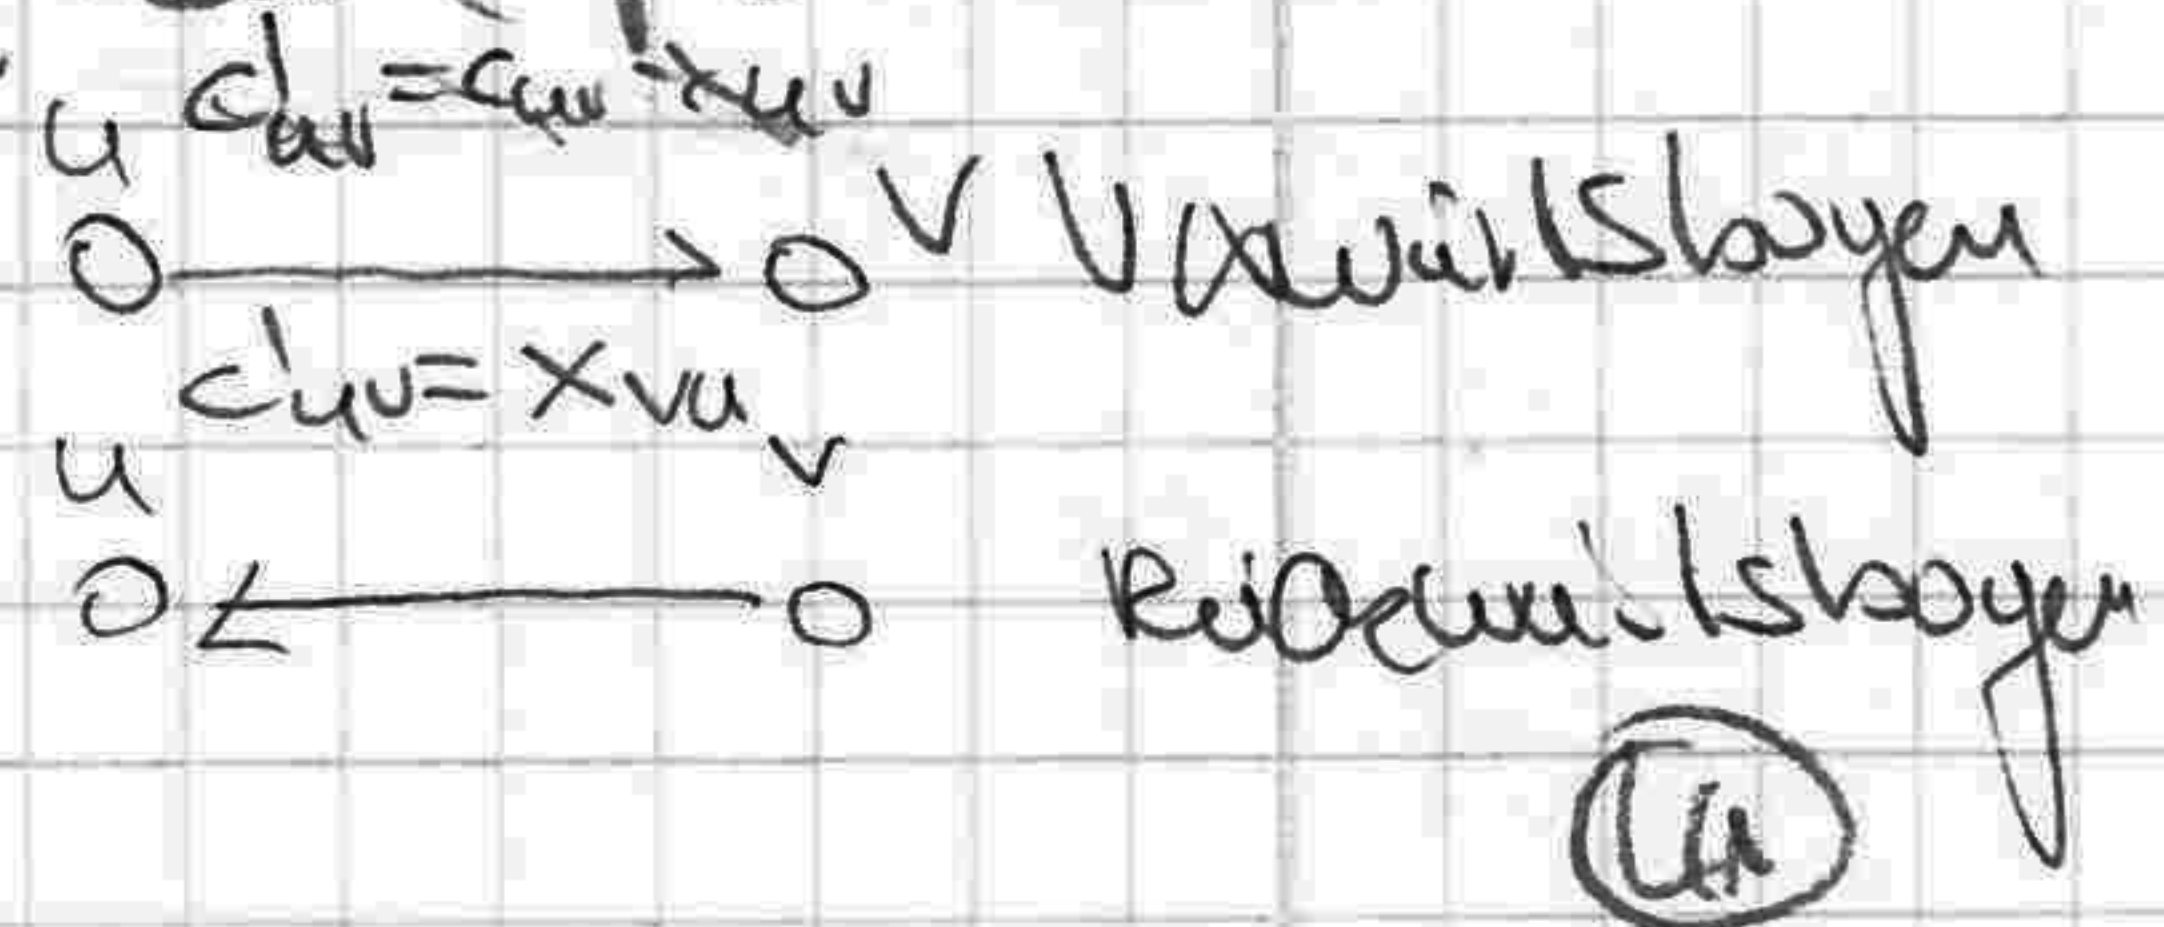 c'uv = cuv - xuv
u
v Vorwärtsbogen
c'uv = xvu
u v
Rückwärtsbogen